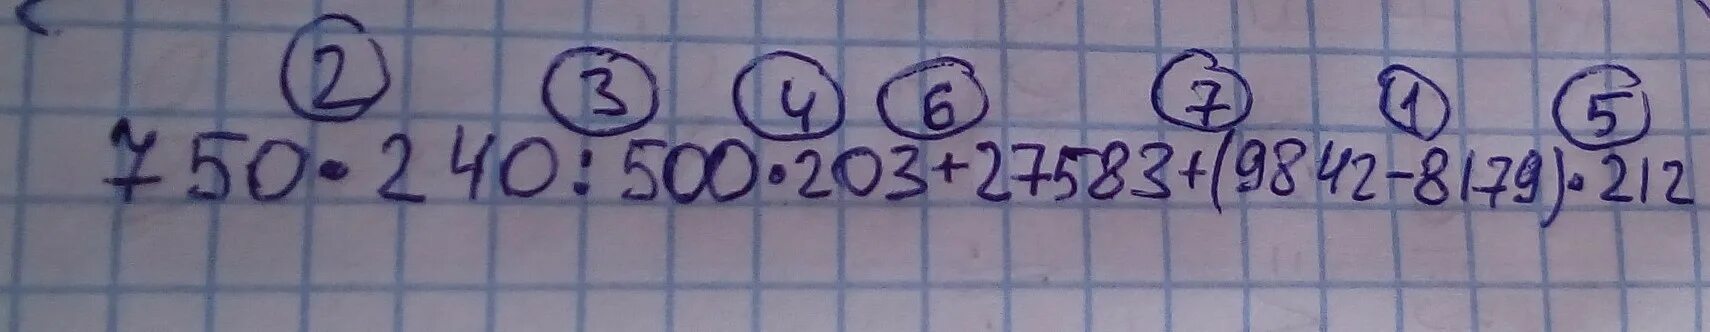 2 3 4 6 7 1 5
750·240:500·203+27583+(9842-8179)·212